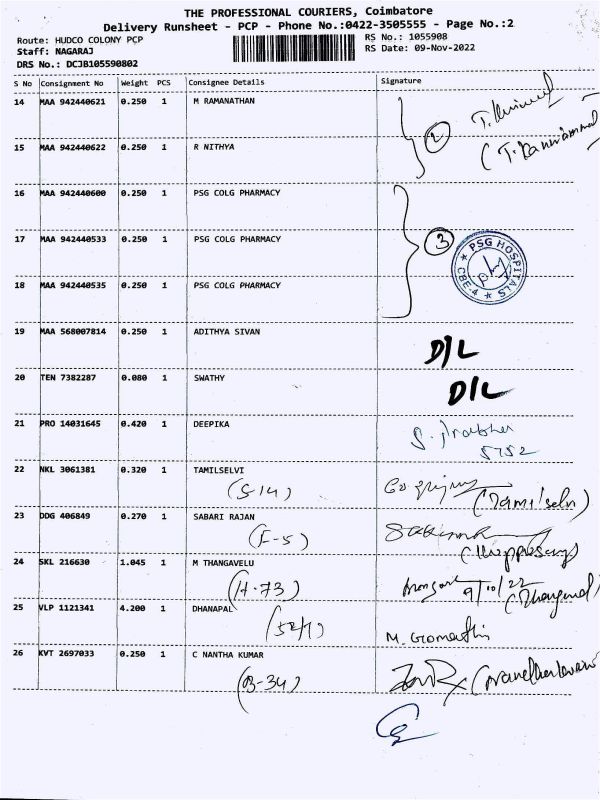 THE PROFESSIONAL COURIERS, Coimbatore
Delivery Runsheet - PCP - Phone No.:0422-3505555 - Page No.:2
Route: HUDCO COLONY PCP RS No.: 1055908
Staff: NAGARAJ RS Date: 09-Nov-2022
DRS No.: DCJB105590802
S No Consignment No Weight PCS Consignee Details Signature
14 MAA 942440621 0.250 1 M RAMANATHAN
2
15 MAA 942440622 0.250 1 R NITHYA
16 MAA 942440600 0.250 1 PSG COLG PHARMACY
17 MAA 942440533 0.250 1 PSG COLG PHARMACY
3
PSG HOSPITALS CBE-4
18 MAA 942440535 0.250 1 PSG COLG PHARMACY
19 MAA 568007814 0.250 1 ADITHYA SIVAN
D/L
20 TEN 7382287 0.080 1 SWATHY
D/L
21 PRO 14031645 0.420 1 DEEPIKA
22 NKL 3061381 0.320 1 TAMILSELVI
(S-14)
23 DDG 406849 0.270 1 SABARI RAJAN
(F-5)
24 SKL 216630 1.045 1 M THANGAVELU
(H-73) 9/10/22
25 VLP 1121341 4.200 1 DHANAPAL
M. Gomathi
26 KVT 2697033 0.250 1 C NANTHA KUMAR
(B-34)